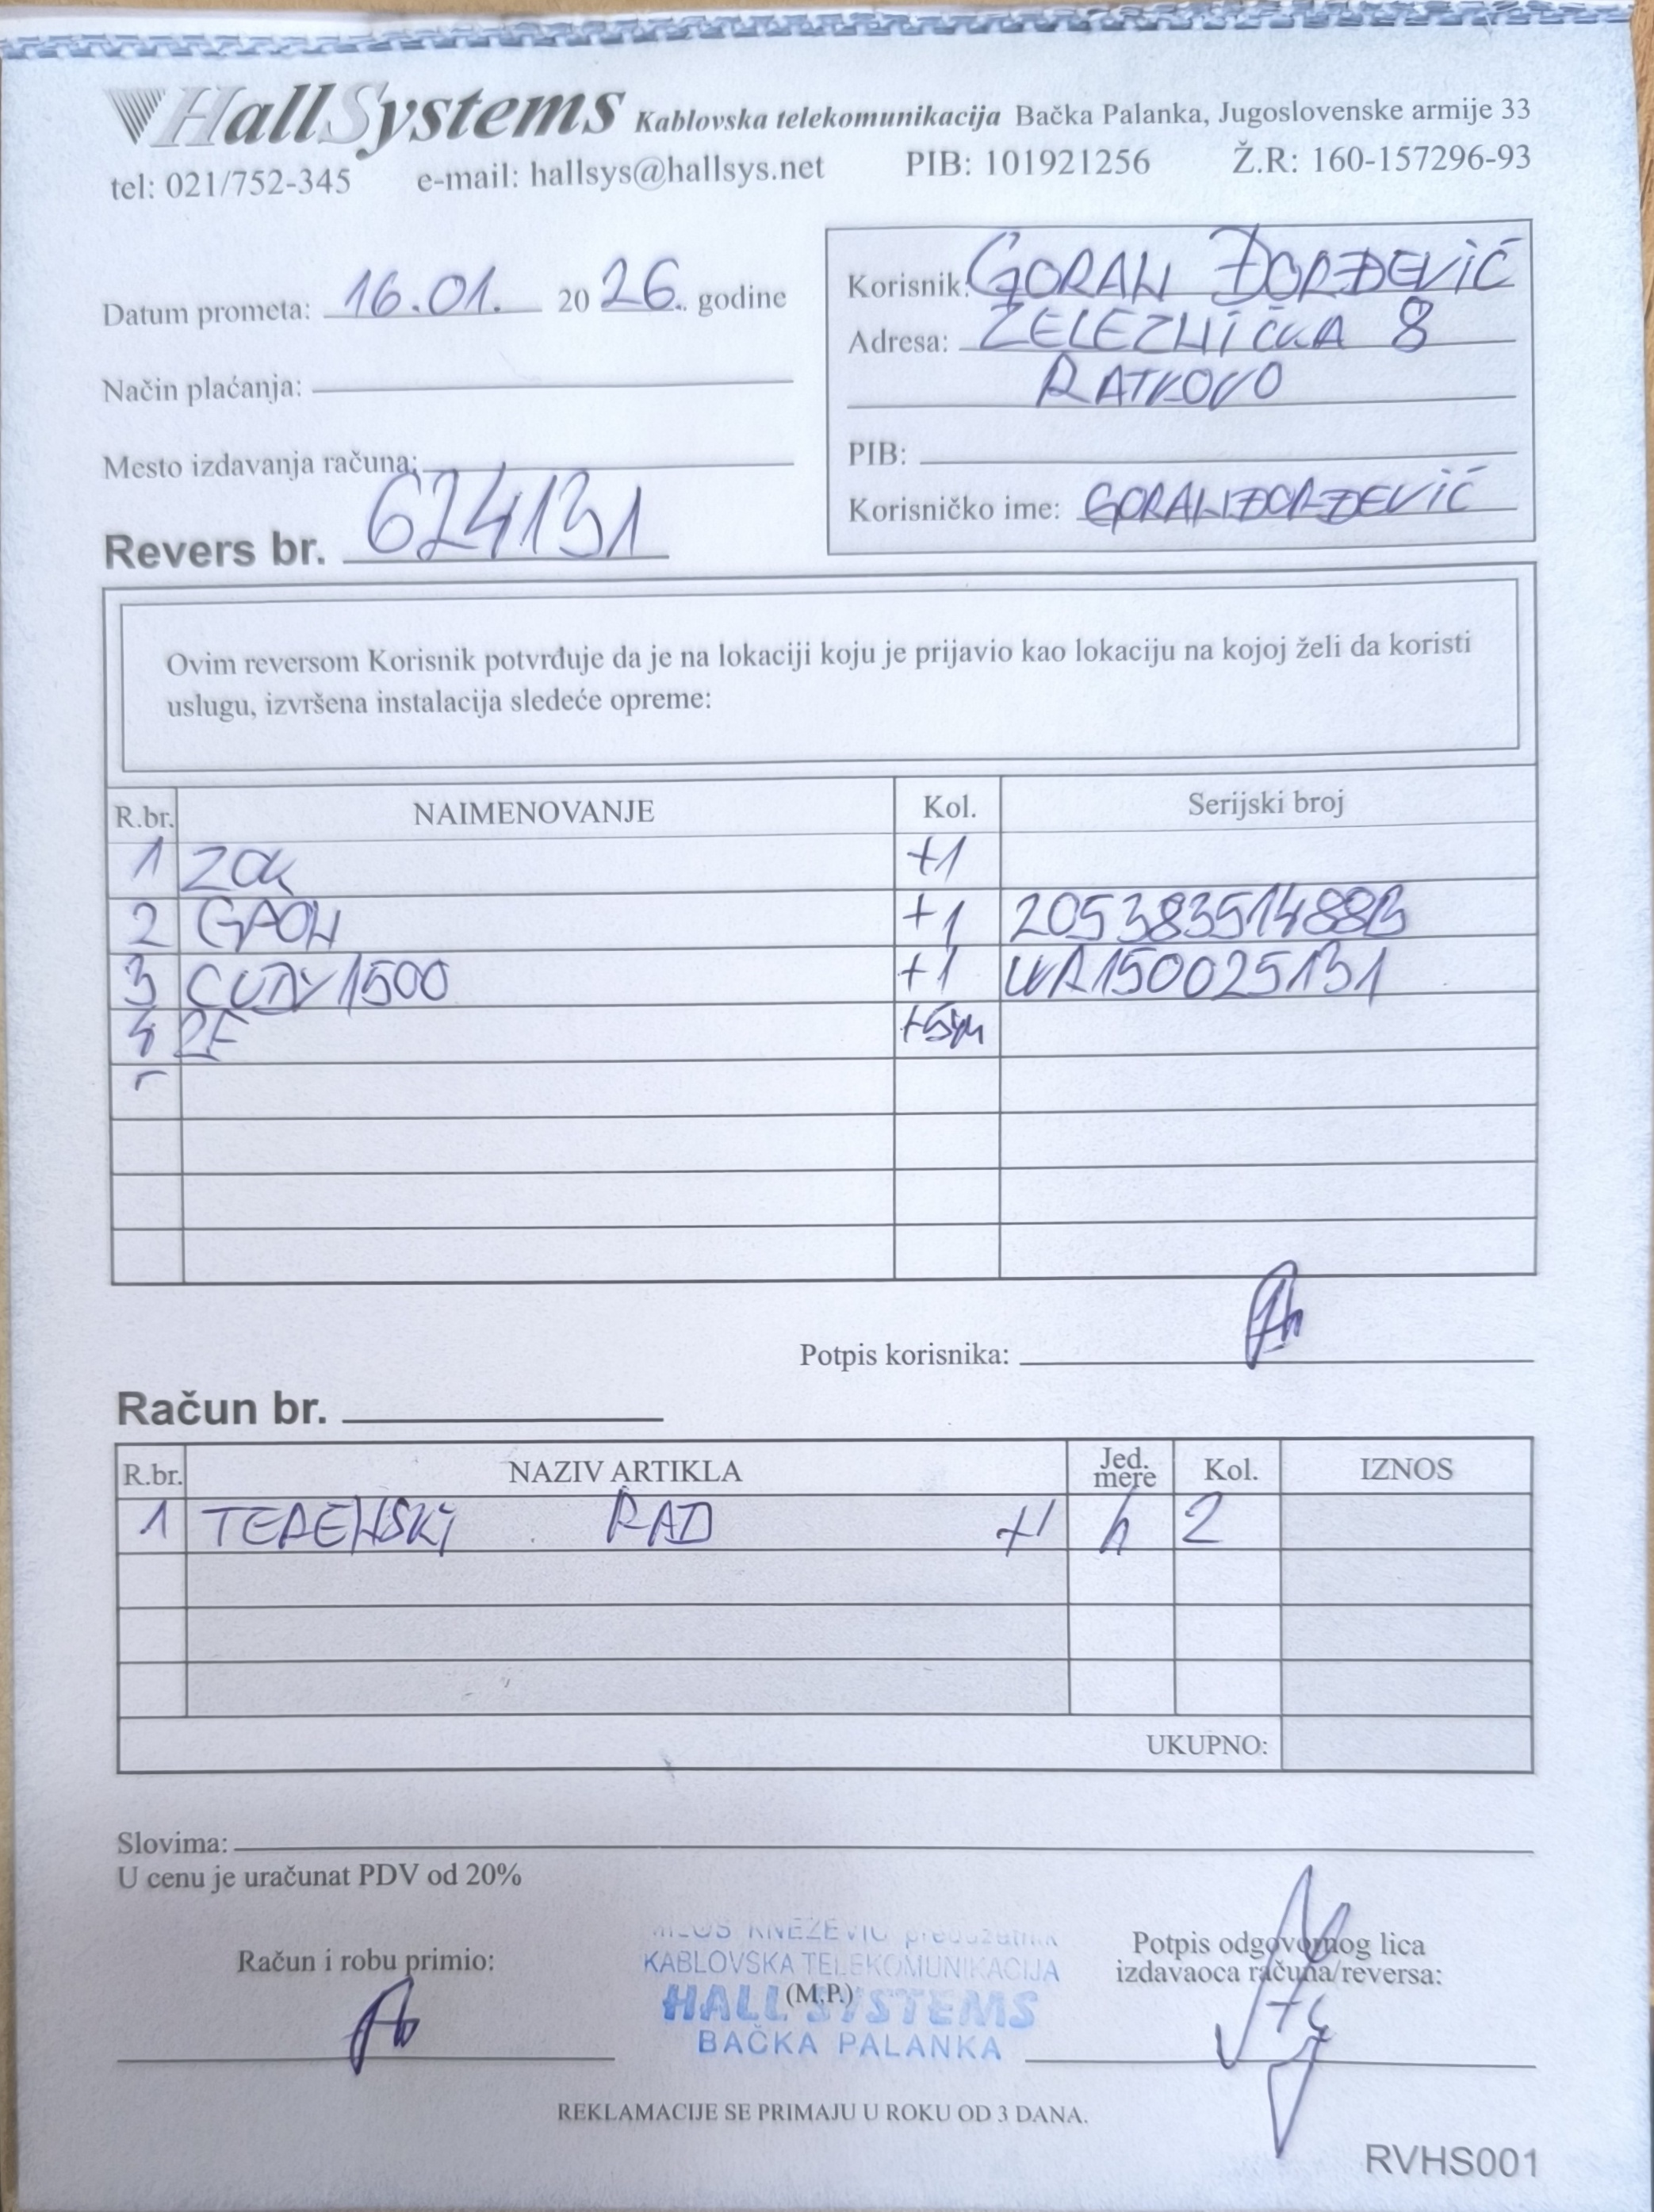 HallSystems Kablovska telekomunikacija Bačka Palanka, Jugoslovenske armije 33
tel: 021/752-345 e-mail: hallsys@hallsys.net PIB: 101921256 Ž.R: 160-157296-93
Datum prometa: 16.01. 2026. godine
Način plaćanja:
Mesto izdavanja računa:
Revers br. 624131
Korisnik: GORAN ĐORĐEVIĆ
Adresa: ŽELEZNIČKA 8
RATKOVO
PIB:
Korisničko ime: GORANĐORĐEVIĆ
Ovim reversom Korisnik potvrđuje da je na lokaciji koju je prijavio kao lokaciju na kojoj želi da koristi
uslugu, izvršena instalacija sledeće opreme:
R.br. NAIMENOVANJE Kol. Serijski broj
1 ZOK +1
2 GPON +1 20538351488B
3 CUDY 1500 +1 WR150025131
4 2F
Potpis korisnika:
Račun br.
R.br. NAZIV ARTIKLA Jed. mere Kol. IZNOS
1 TERENSKI RAD h 2
UKUPNO:
Slovima:
U cenu je uračunat PDV od 20%
Račun i robu primio:
MILOŠ KNEŽEVIĆ preduzetnik
KABLOVSKA TELEKOMUNIKACIJA
(M.P.)
HALL SYSTEMS
BAČKA PALANKA
Potpis odgovornog lica
izdavaoca računa/reversa:
REKLAMACIJE SE PRIMAJU U ROKU OD 3 DANA.
RVHS001